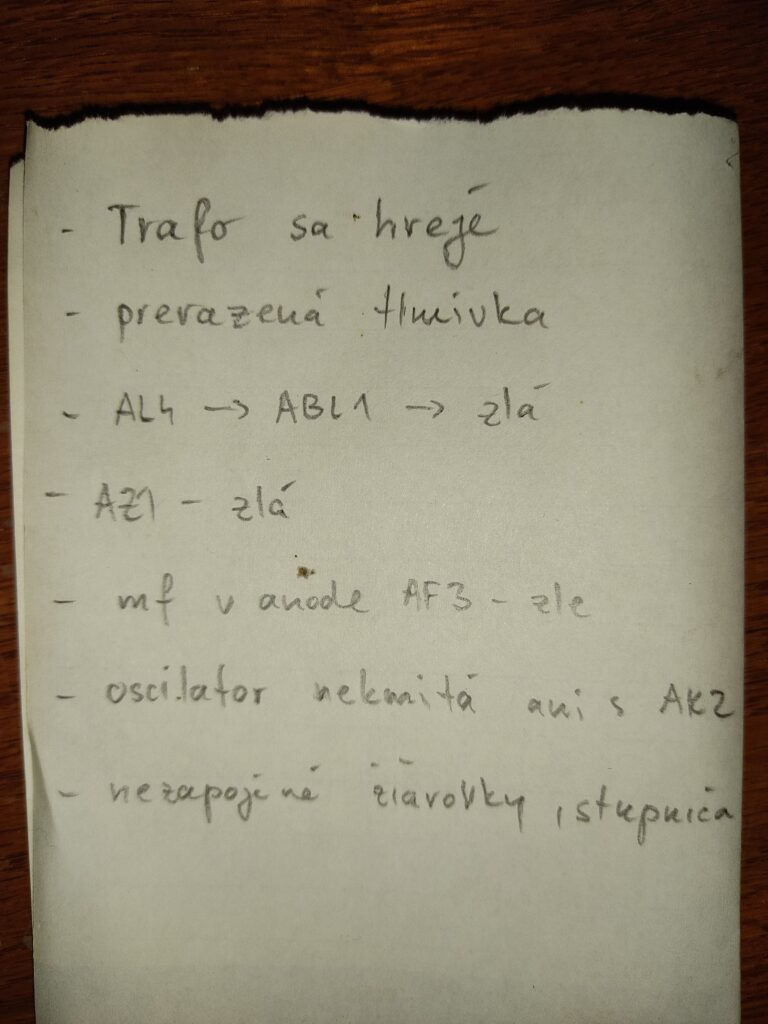 - Trafo sa hreje
- prerazená tlmivka
- AL4 → ABL1 → zlá
- AZ1 - zlá
- mf v anode AF3 - zle
- oscilator nekmitá ani s AK2
- nezapojené žiarovky, stupnica